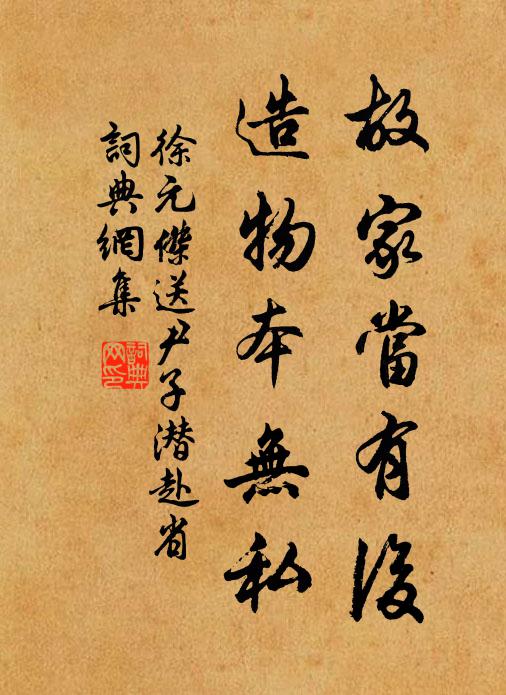 故家當有後
造物本無私
徐元傑送尹子潛赴省
詞典網集
詞典網印